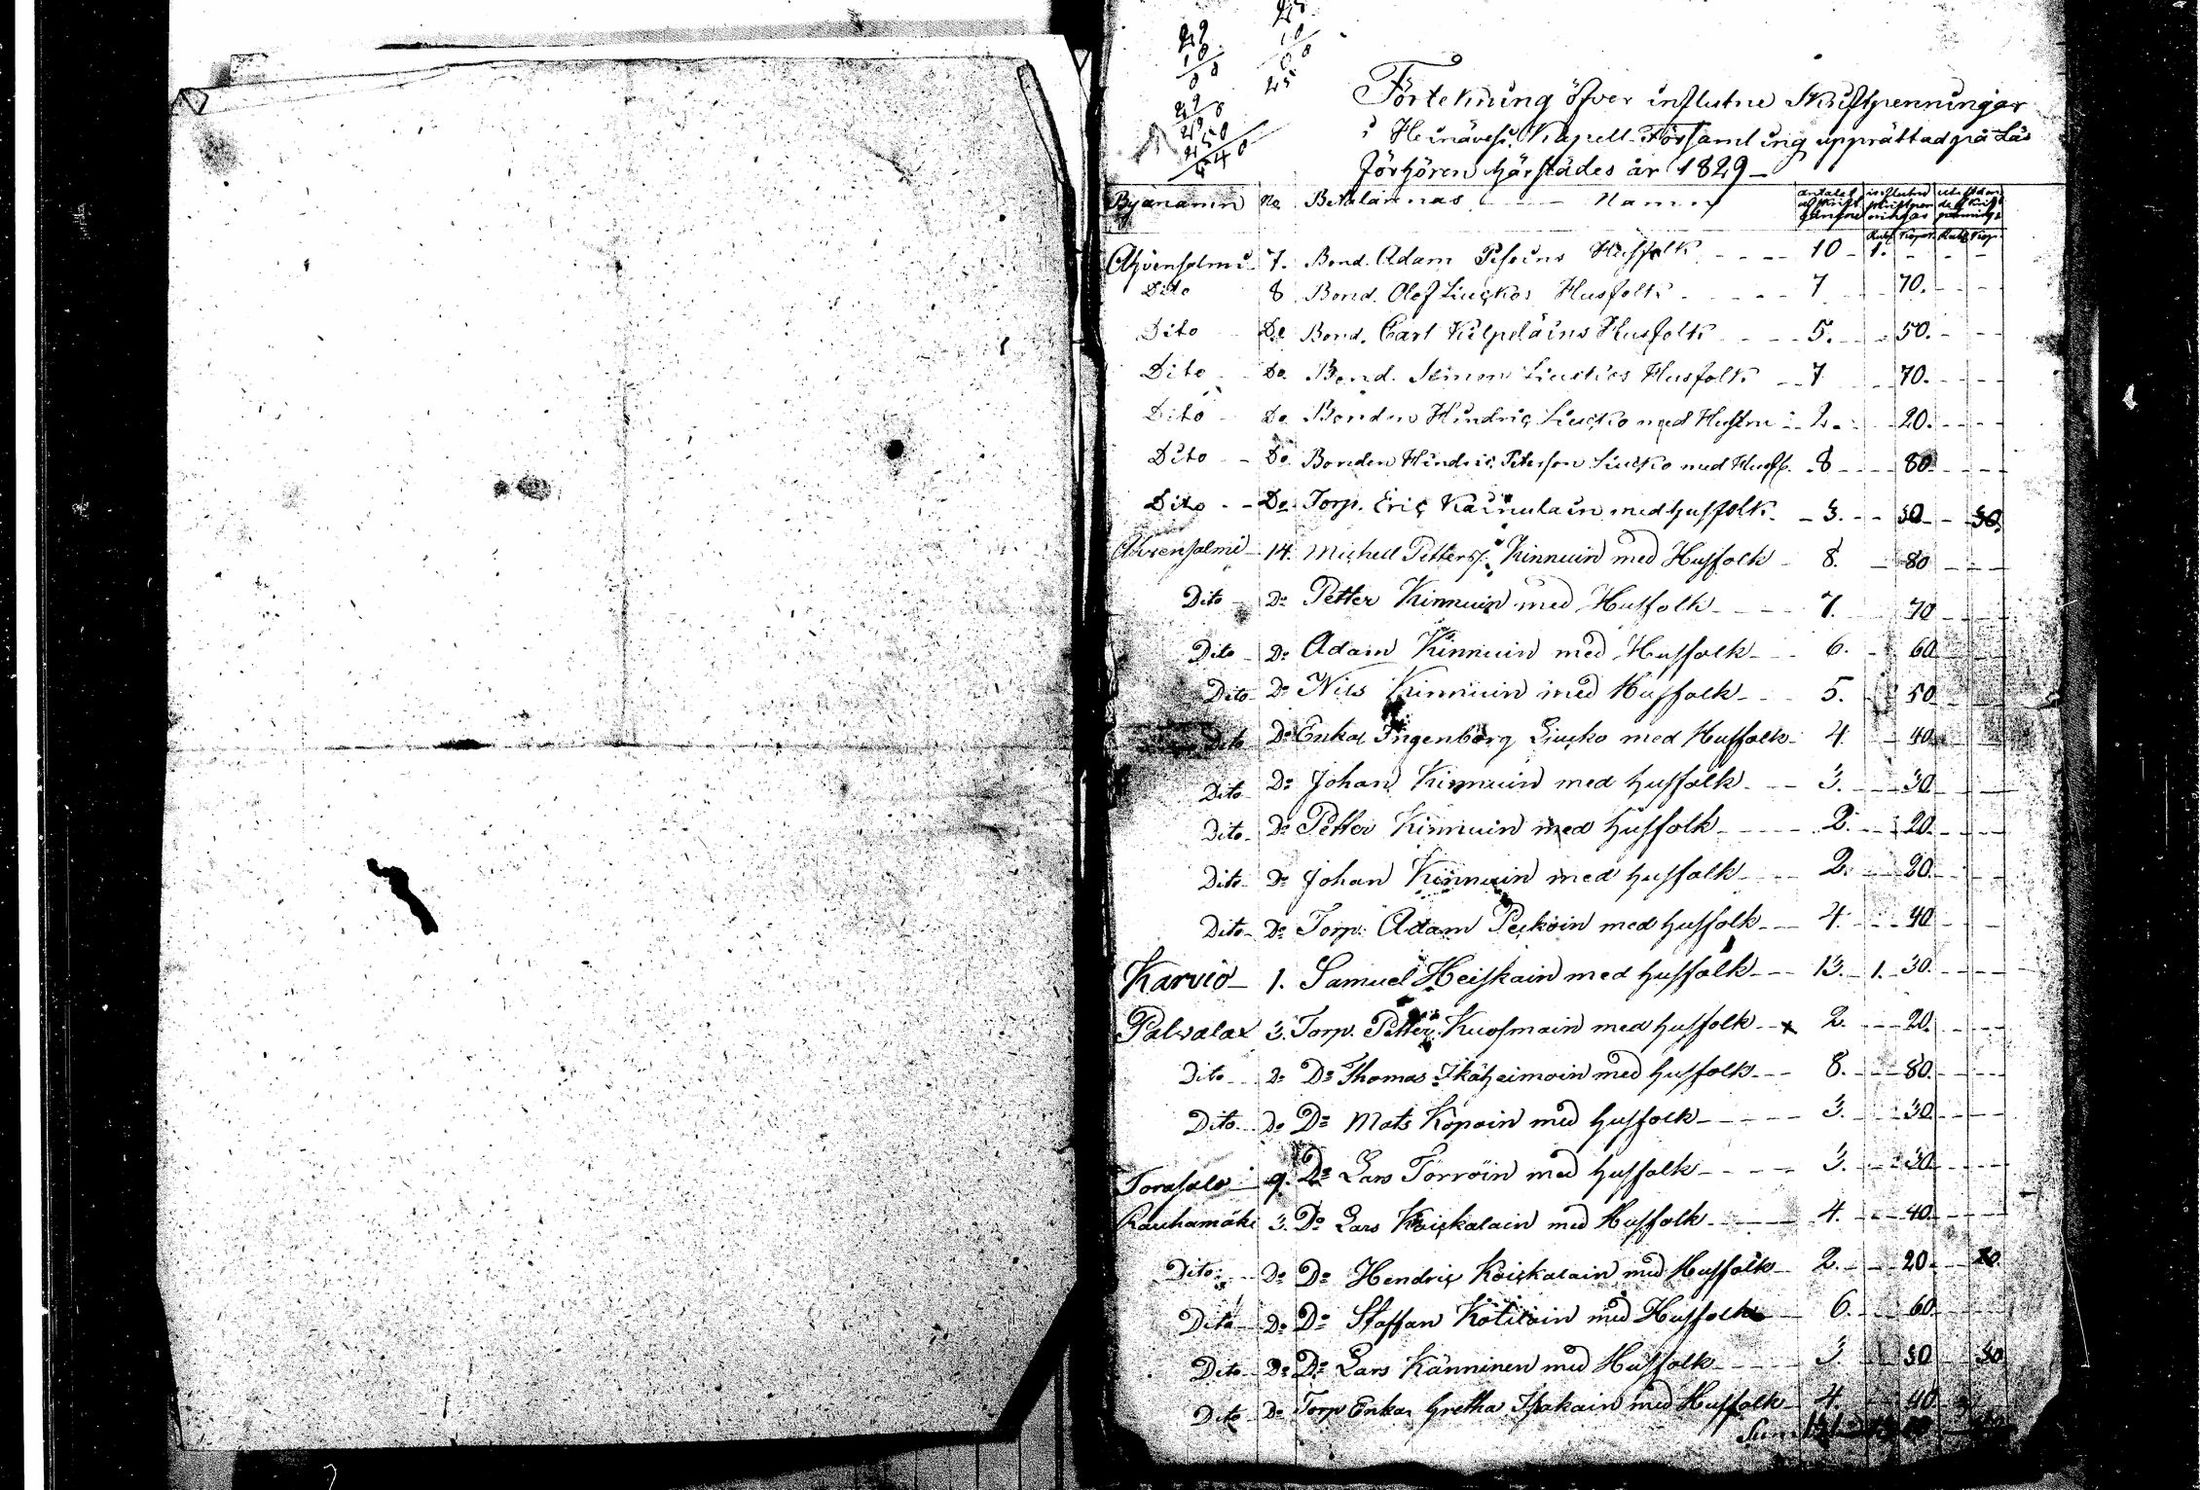 Förtekning öfver influtne Skriftpenningar
i Heinävesi Kapell-Församling upprättad på Läs
förhören härstädes år 1829
Byanamn No Betalarnas Namn antalet af skriftgångne influtne skriftpenningar
Rub. Kopek. Rub. Kop.
Ahvensalmi 7. Bond. Adam Husfolk 10 1.
Dito 8 Bond. Olof Liuckos Husfolk 7 70.
Dito Do Bond. Carl Kilpeläins Husfolk 5. 50.
Dito Do Bond. Simon Liuckos Husfolk 7 70.
Dito Do Bonden Hindric Liucko med Hustru 2. 20.
Dito Do Bonden Hindric Peterson Liucko med Husf. 8 80
Dito Do Torp. Eric Kainulain med husfolk 3. 30 30.
Ahvensalmi 14. Michell Petterss. Kinnuin med Husfolk 8. 80
Dito Do Petter Kinnuin med Husfolk 7. 70
Dito Do Adam Kinnuin med Husfolk 6. 60
Dito Do Nils Kinnuin med Husfolk 5. 50
Dito Do Enkan Ingenborg Liucko med Husfolk 4. 40
Dito Do Johan Kinnuin med husfolk 3. 30
Dito Do Petter Kinnuin med husfolk 2. 20
Dito Do Johan Kinnuin med husfolk 2. 20.
Dito Do Torp. Adam Peckoin med husfolk 4. 40
Karvio 1. Samuel Heiskain med husfolk 13. 1. 30.
Palvalax 3. Torp. Petter Kuosmain med husfolk x 2. 20.
Dito Do Do Thomas Ikäheimoin med husfolk 8. 80.
Dito Do Do Mats Kopoin med husfolk 3. 30.
Torasalo 9. Do Lars Torröin med husfolk 3. 30
Rauhamäki 3. Do Lars Koickalain med Husfolk 4. 40.
Dito Do Do Hendric Koickalain med Husfolk 2. 20 20
Dito Do Do Staffan Kotilain med Husfolk 6. 60
Dito Do Do Lars Känninen med Husfolk 3. 30 30
Dito Do Torp Enkan Gretha Isakain med Husfolk 4. 40
Sum 131